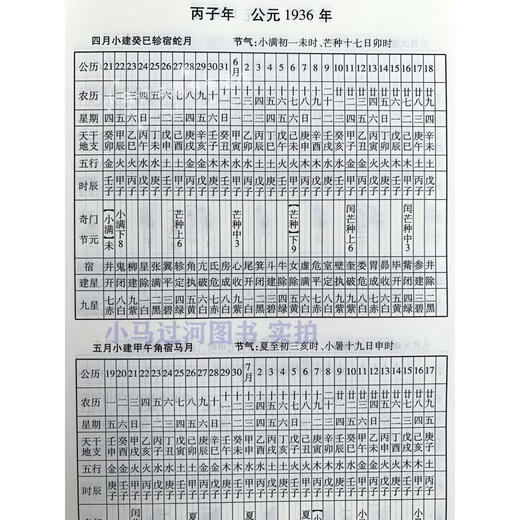 丙子年 公元 1936 年
四月小建癸巳轸宿蛇月 节气:小满初一未时、芒种十七日卯时
公历 21 22 23 24 25 26 27 28 29 30 31 6月 2 3 4 5 6 7 8 9 10 11 12 13 14 15 16 17 18
农历 一 二 三 四 五 六 七 八 九 十 十一 十二 十三 十四 十五 十六 十七 十八 十九 二十 廿一 廿二 廿三 廿四 廿五 廿六 廿七 廿八 廿九
星期 四 五 六 日 一 二 三 四 五 六 日 一 二 三 四 五 六 日 一 二 三 四 五 六 日 一 二 三 四
天干地支 癸卯 甲辰 乙巳 丙午 丁未 戊申 己酉 庚戌 辛亥 壬子 癸丑 甲寅 乙卯 丙辰 丁巳 戊午 己未 庚申 辛酉 壬戌 癸亥 甲子 乙丑 丙寅 丁卯 戊辰 己巳 庚午 辛未
五行 金 火 火 水 水 土 土 金 金 木 木 水 水 土 土 火 火 木 木 水 水 金 金 火 火 木 木 土 土
时辰 壬子 甲子 丙子 戊子 庚子 壬子 甲子 丙子 戊子 庚子 壬子 甲子 丙子 戊子 庚子 壬子 甲子 丙子 戊子 庚子 壬子 甲子 丙子 戊子 庚子 壬子 甲子 丙子 戊子
奇门节元 【小满】未 小满下8 芒种上6 芒种中3 【芒种】下9 闰芒种上6 闰芒种中3
宿 井 鬼 柳 星 张 翼 轸 角 亢 氐 房 心 尾 箕 斗 牛 女 虚 危 室 壁 奎 娄 胃 昴 毕 觜 参 井
建星
九星
小马过河图书 实拍
五月小建甲午角宿马月 节气:夏至初三亥时、小暑十九日申时
公历 19 20 21 22 23 24 25 26 27 28 29 30 7月 2 3 4 5 6 7 8 9 10 11 12 13 14 15 16 17
农历 一 二 三 四 五 六 七 八 九 十 十一 十二 十三 十四 十五 十六 十七 十八 十九 二十 廿一 廿二 廿三 廿四 廿五 廿六 廿七 廿八 廿九
星期 五 六 日 一 二 三 四 五 六 日 一 二 三 四 五 六 日 一 二 三 四 五 六 日 一 二 三 四 五
天干地支 壬申 癸酉 甲戌 乙亥 丙子 丁丑 戊寅 己卯 庚辰 辛巳 壬午 癸未 甲申 乙酉 丙戌 丁亥 戊子 己丑 庚寅 辛卯 壬辰 癸巳 甲午 乙未 丙申 丁酉 戊戌 己亥 庚子
五行 金 金 火 火 水 水 土 土 金 金 木 木 水 水 土 土 火 火 木 木 水 水 金 金 火 火 木 木 土
时辰 庚子 壬子 甲子 丙子 戊子 庚子 壬子 甲子 丙子 戊子 庚子 壬子 甲子 丙子 戊子 庚子 壬子 甲子 丙子 戊子 庚子 壬子 甲子 丙子 戊子 庚子 壬子 甲子 丙子